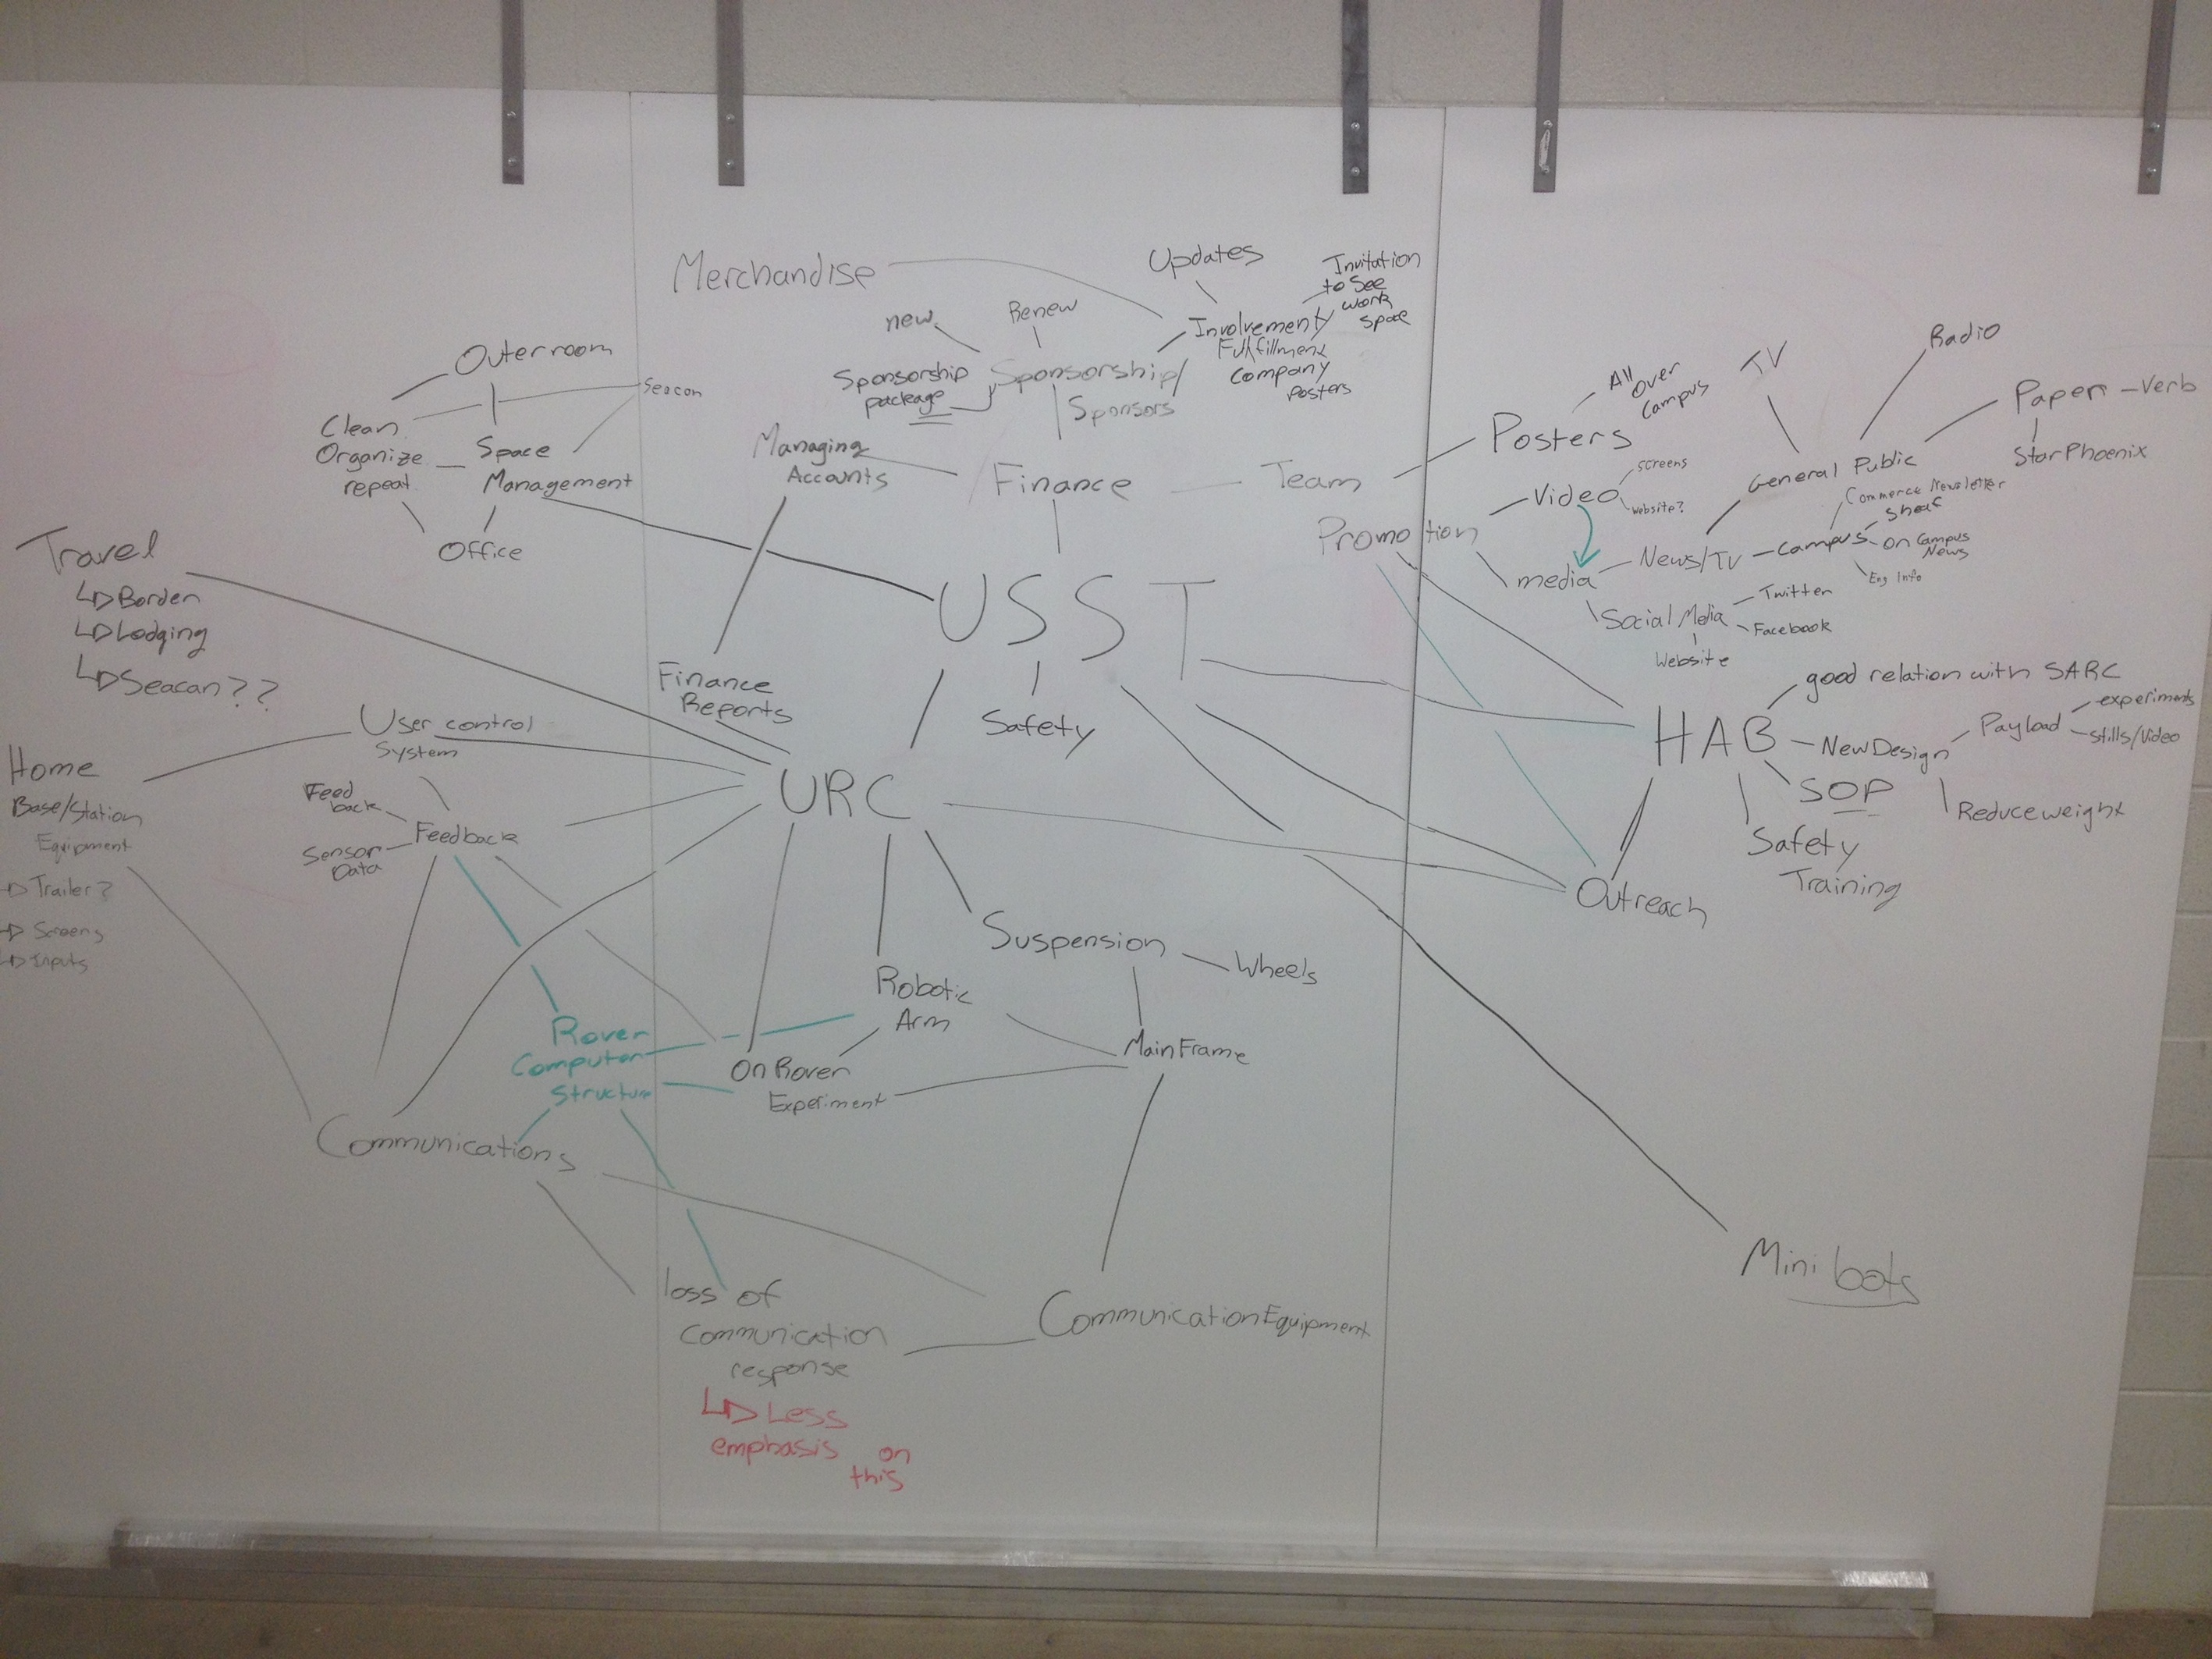 Merchandise
Updates
Invitation
to See
work
space
new
Renew
Involvement/
Fulfillment
Company
Posters
Sponsorship
package
Sponsorship/
Sponsors
Outer room
Seacan
Clean
Organize
repeat
Space
Management
Office
Managing
Accounts
Finance
Team
Promotion
Posters
All
over
Campus
Video
screens
website?
media
News/TV
General Public
TV
Radio
Paper - Verb
StarPhoenix
Campus
Commerce Newsletter
Sheaf
On Campus
News
Eng Info
Social Media
Twitter
Facebook
Website
Travel
Border
Lodging
Seacan??
USST
Safety
Finance
Reports
User control
System
Home
Base/Station
Equipment
Trailer?
Screens
Inputs
Feed
back
Feedback
Sensor
Data
URC
HAB
good relation with SARC
New Design
Payload
experiments
stills/video
SOP
Reduce weight
Safety
Training
Outreach
Suspension
Wheels
Robotic
Arm
Main Frame
Rover
Computer
Structure
On Rover
Experiment
Communications
loss of
communication
response
Less
emphasis on
this
Communication Equipment
Mini bots